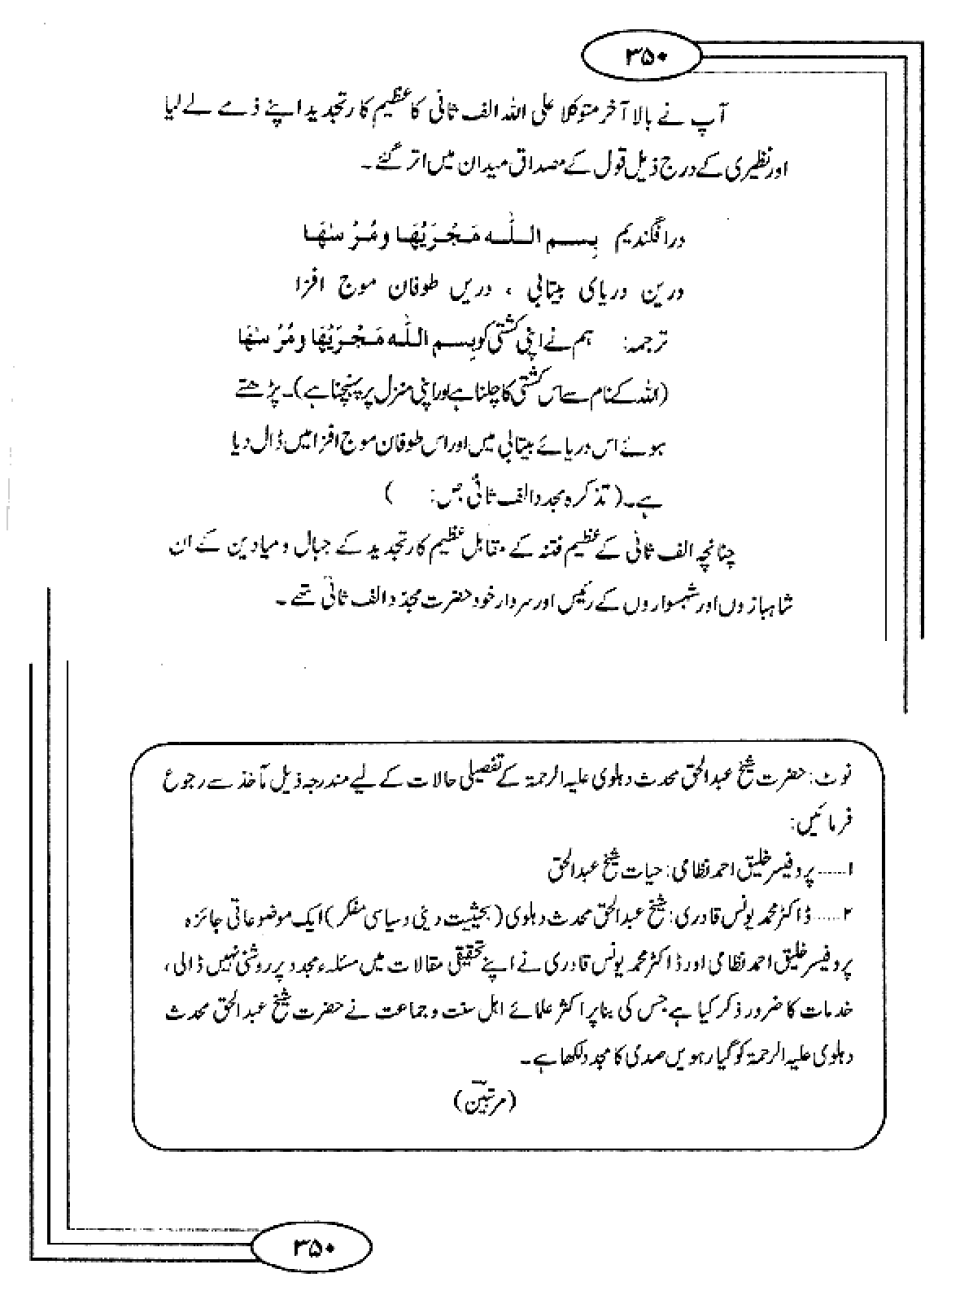 ۳۵۰
آپ نے بالاآخر متوکلا علی اللہ الف ثانی کا عظیم کار تجدید اپنے ذمے لے لیا
اور نظیری کے درج ذیل قول کے مصداق میدان میں اتر گئے ۔
درافگندیم بِسم اللّٰه مَجْرٖیهَا ومُرْسٰهَا
درین دریای بیتابی ، دریں طوفان موج افزا
ترجمہ: ہم نے اپنی کشتی کو بِسم اللّٰه مَجْرٖیهَا ومُرْسٰهَا
(اللہ کے نام سے اس کشتی کا چلنا ہے اور اپنی منزل پر پہنچنا ہے)۔ پڑھتے
ہوئے اس دریائے بیتابی میں اور اس طوفان موج افزا میں ڈال دیا
ہے۔ (تذکرہ مجدد الف ثانی ص: )
چنانچہ الف ثانی کے عظیم فتنہ کے مقابل عظیم کار تجدید کے جبال و میادین کے ان
شاہبازوں اور شہسواروں کے رئیس اور سردار خود حضرت مجدّد الف ثانیؒ تھے ۔
نوٹ: حضرت شیخ عبدالحق محدث دہلوی علیہ الرحمۃ کے تفصیلی حالات کے لیے مندرجہ ذیل مآخذ سے رجوع
فرمائیں:
۱..... پروفیسر خلیق احمد نظامی: حیات شیخ عبدالحق
۲..... ڈاکٹر محمد یونس قادری: شیخ عبدالحق محدث دہلوی (بحیثیت دینی و سیاسی مفکر) ایک موضوعاتی جائزہ
پروفیسر خلیق احمد نظامی اور ڈاکٹر محمد یونس قادری نے اپنے تحقیقی مقالات میں مسئلہ مجدد پر روشنی نہیں ڈالی،
خدمات کا ضرور ذکر کیا ہے جس کی بنا پر اکثر علمائے اہل سنت و جماعت نے حضرت شیخ عبدالحق محدث
دہلوی علیہ الرحمۃ کو گیارہویں صدی کا مجدد لکھا ہے۔
(مرتبین)
۳۵۰